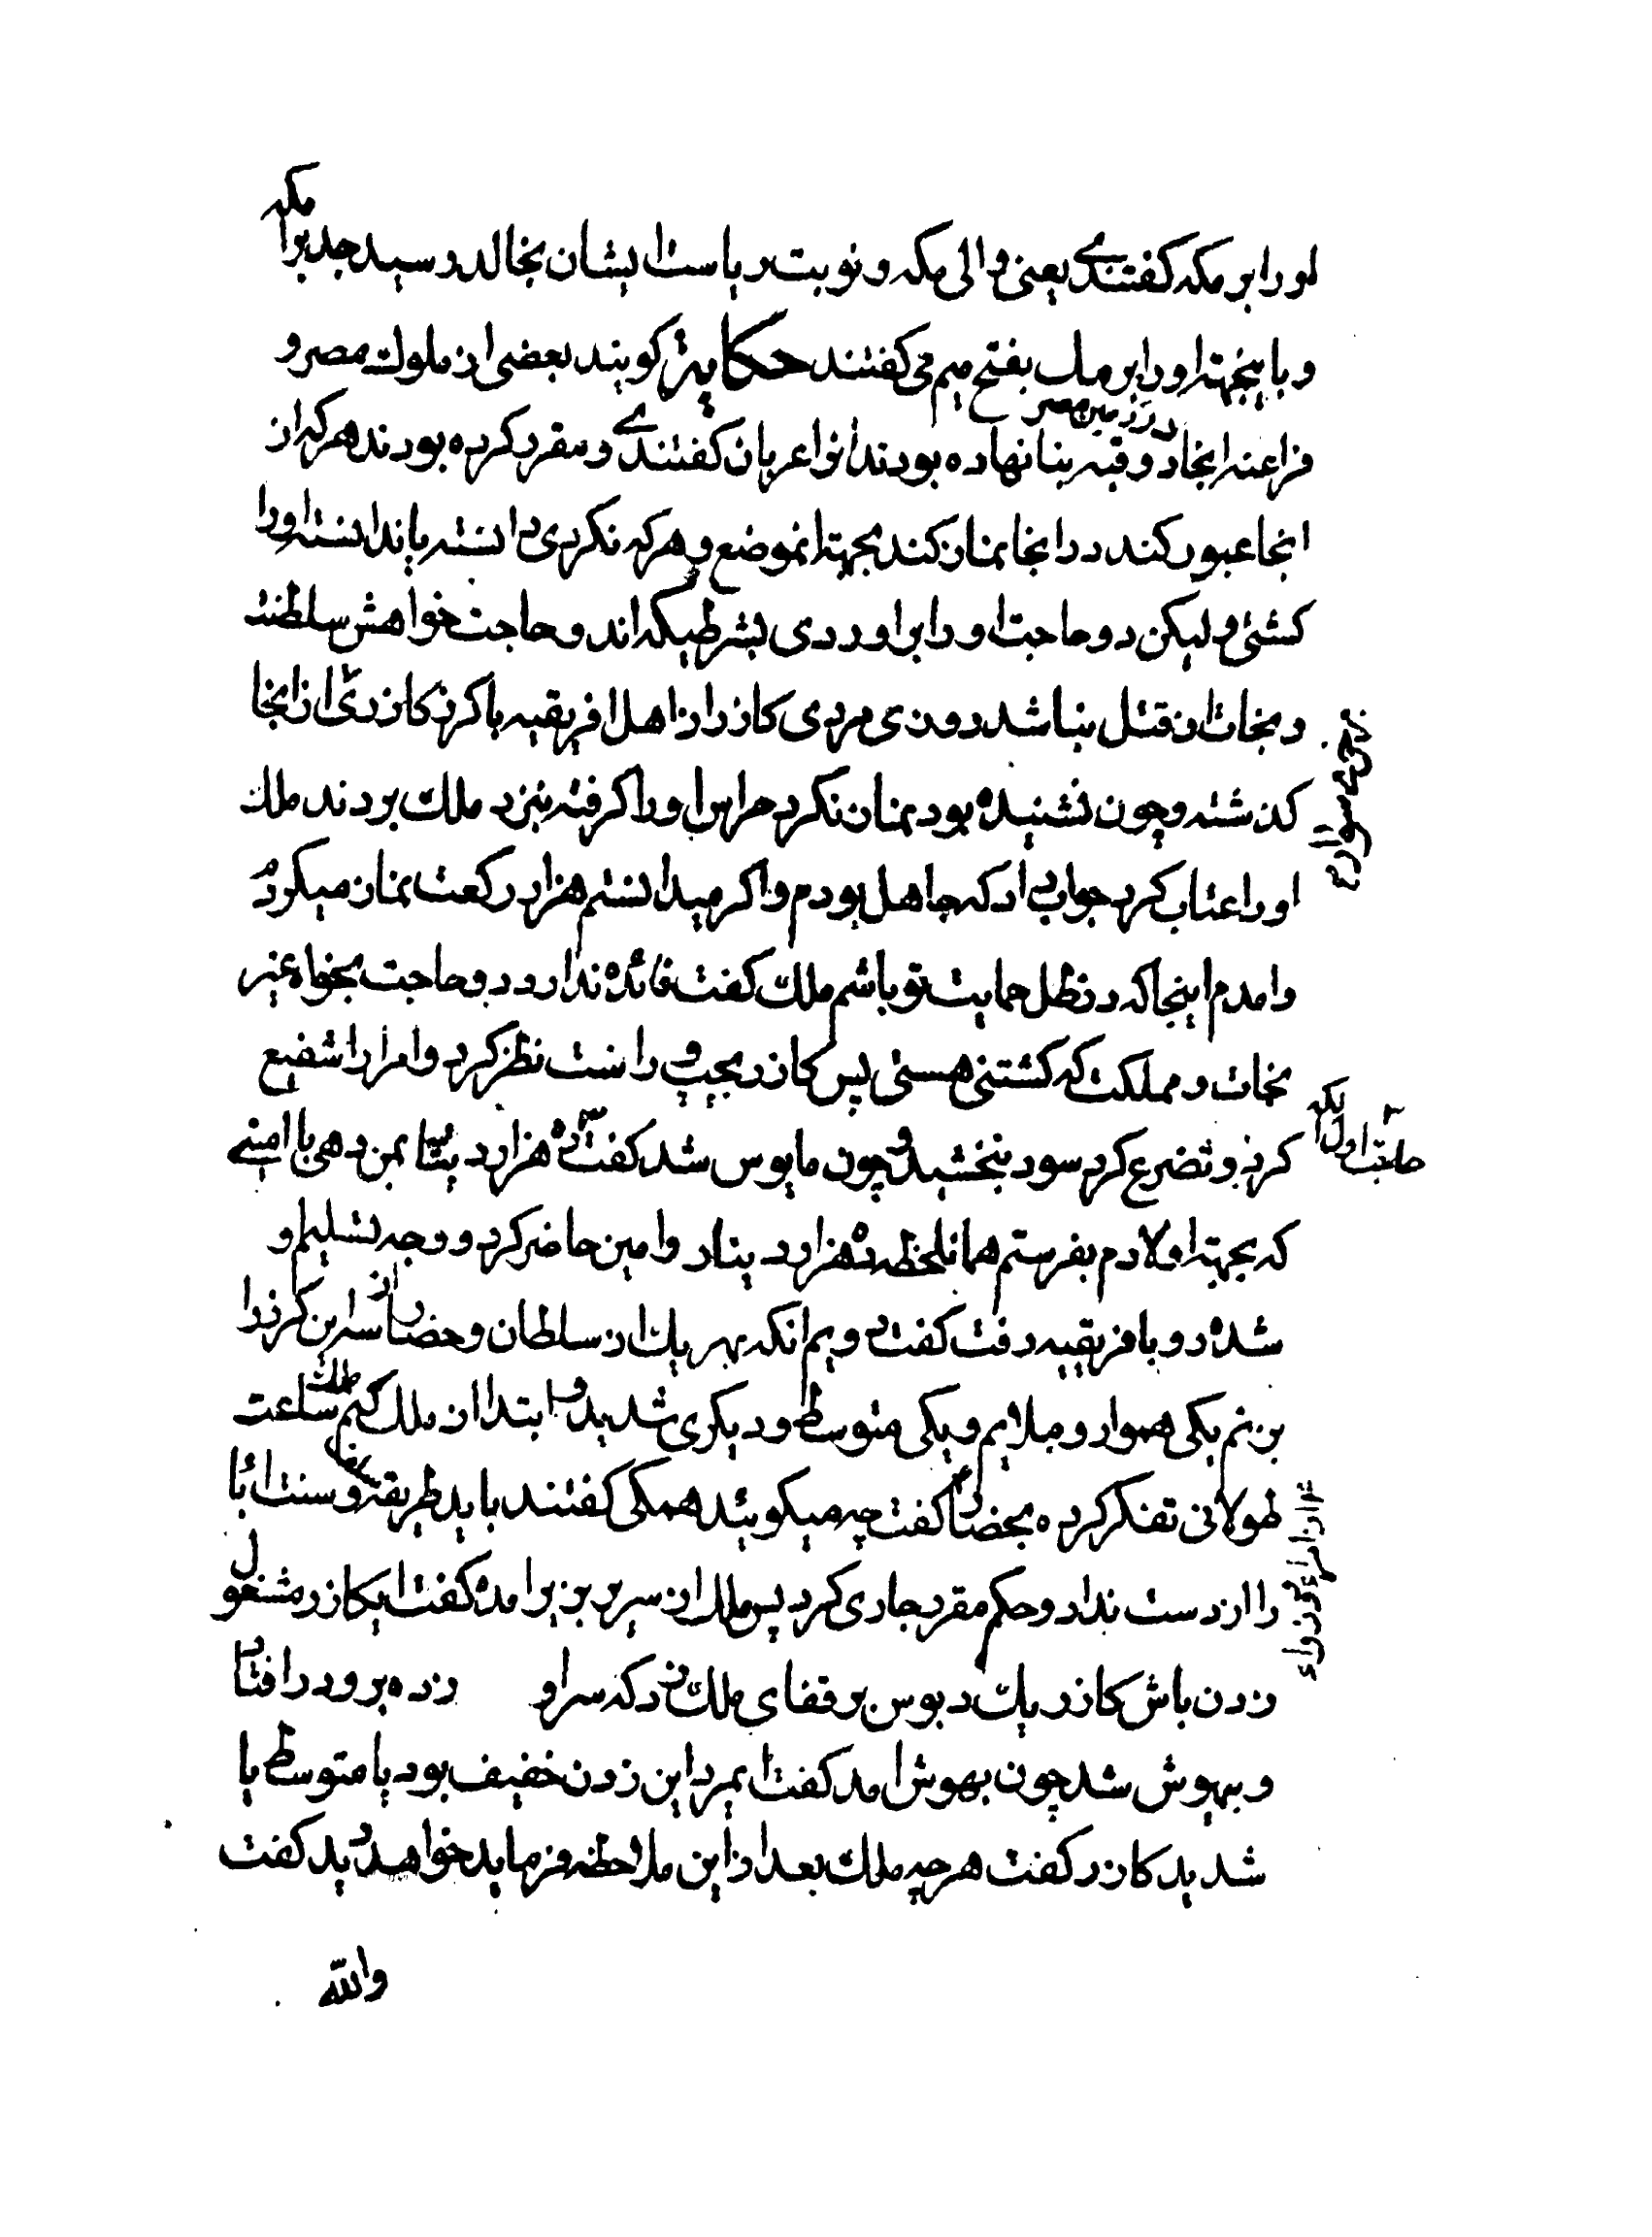 او را بر مکه گفتندی یعنی والی مکه و نوبت ریاست ایشان بخالد رسید جد برا مکه
و باینجهة او را برمك بفتح میم می گفتند حکایة گویند بعضی از ملوك مصر و
در زمین مصر
فراعنه انجا دو قبه بنا نهاده بودند انرا عریان گفتندی و مقرر کرده بودند هر که از
انجا عبور کند در انجا نماز کند بجهة انموضع و هر که نکردی دانسته یا ندانسته او را
کشتی و لیکن دو حاجت او را براوردی بشرطیکه اند و حاجت خواهش سلطنت
و نجات از قتل نباشد روزی مردی کازر از اهل افریقیه با کرز کازری از انجا
گذشته و چون نشنیده بود نماز نکرد او را گرفته بنزد ملك بردند ملك
او را عتاب کرد جواب داد که جاهل بودم و اگر میدانستم هزار رکعت نماز میکردم
وامدم اینجا که در ظل حمایت تو باشم ملك گفت فائده ندارد دو حاجت بخواه غیر
نجات و مملکت که کشتنی هستی پس کازر بچپ و راست نظر کرد و امرا را شفیع
کرد و تضرع کرد سود نبخشید و چون مایوس شد گفت ده هزار دینار بمن دهی با امینی
حاجت اول آنکه
که بجهة اولادم بفرستم همانلحظه ده هزار دینار و امین حاضر کرد و وجه تسلیم او
شده رو بافریقیه رفت گفت دویم انکه بهر یك از سلطان و حضار سه از این کرز را
بزنم یکی هموار و ملایم و یکی متوسط و دیگری شدید و ابتدا از ملك کنم ملك ساعت
طولانی تفکر کرده بحضار گفت چه میگوئید همگی گفتند باید طریقه و سنت ابا
را از دست نداد و حکم مقرر جاری کرد پس ملك از سریر بزیر امده گفت ایکازر مشغول
زدن باش کازر یك دبوس بر قفای ملك زد که سر او زده برو در افتاد
و بیهوش شد چون بهوش امد گفت ایمرد این زدن خفیف بود یا متوسط یا
شدید کازر گفت هر چه ملك بعد از این ملاحظه فرماید خواهد دید گفت
والله